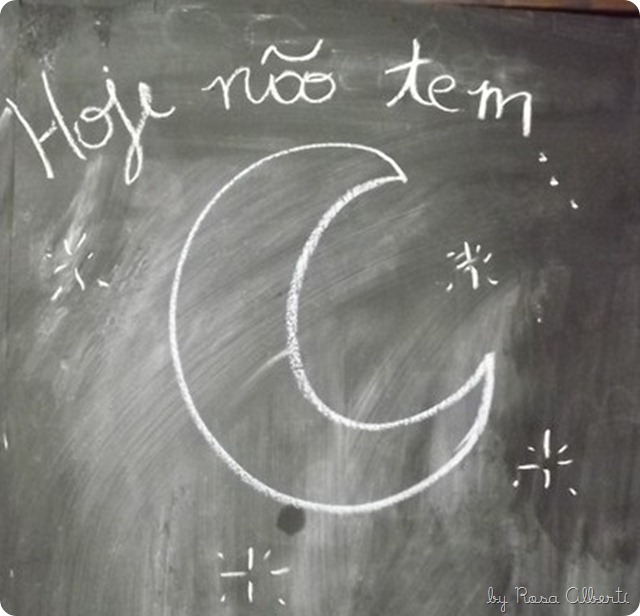 Hoje não tem...
by Rosa Alberti